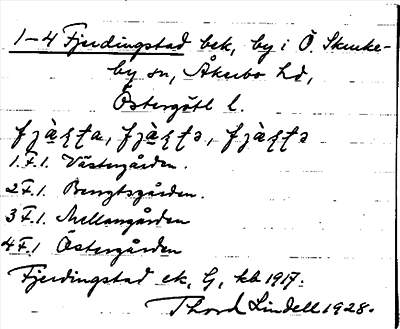 1-4 Fjerdingstad bek, by i Ö. Skruke-
by sn, Åkerbo hd,
Östergötl l.
1 F. 1. Västergården.
2 F. 1. Bengtsgården.
3 F. 1. Mellangården
4 F. 1 Östergården
Fjerdingstad ek. G, kb 1917.
Thord Lindell 1928.